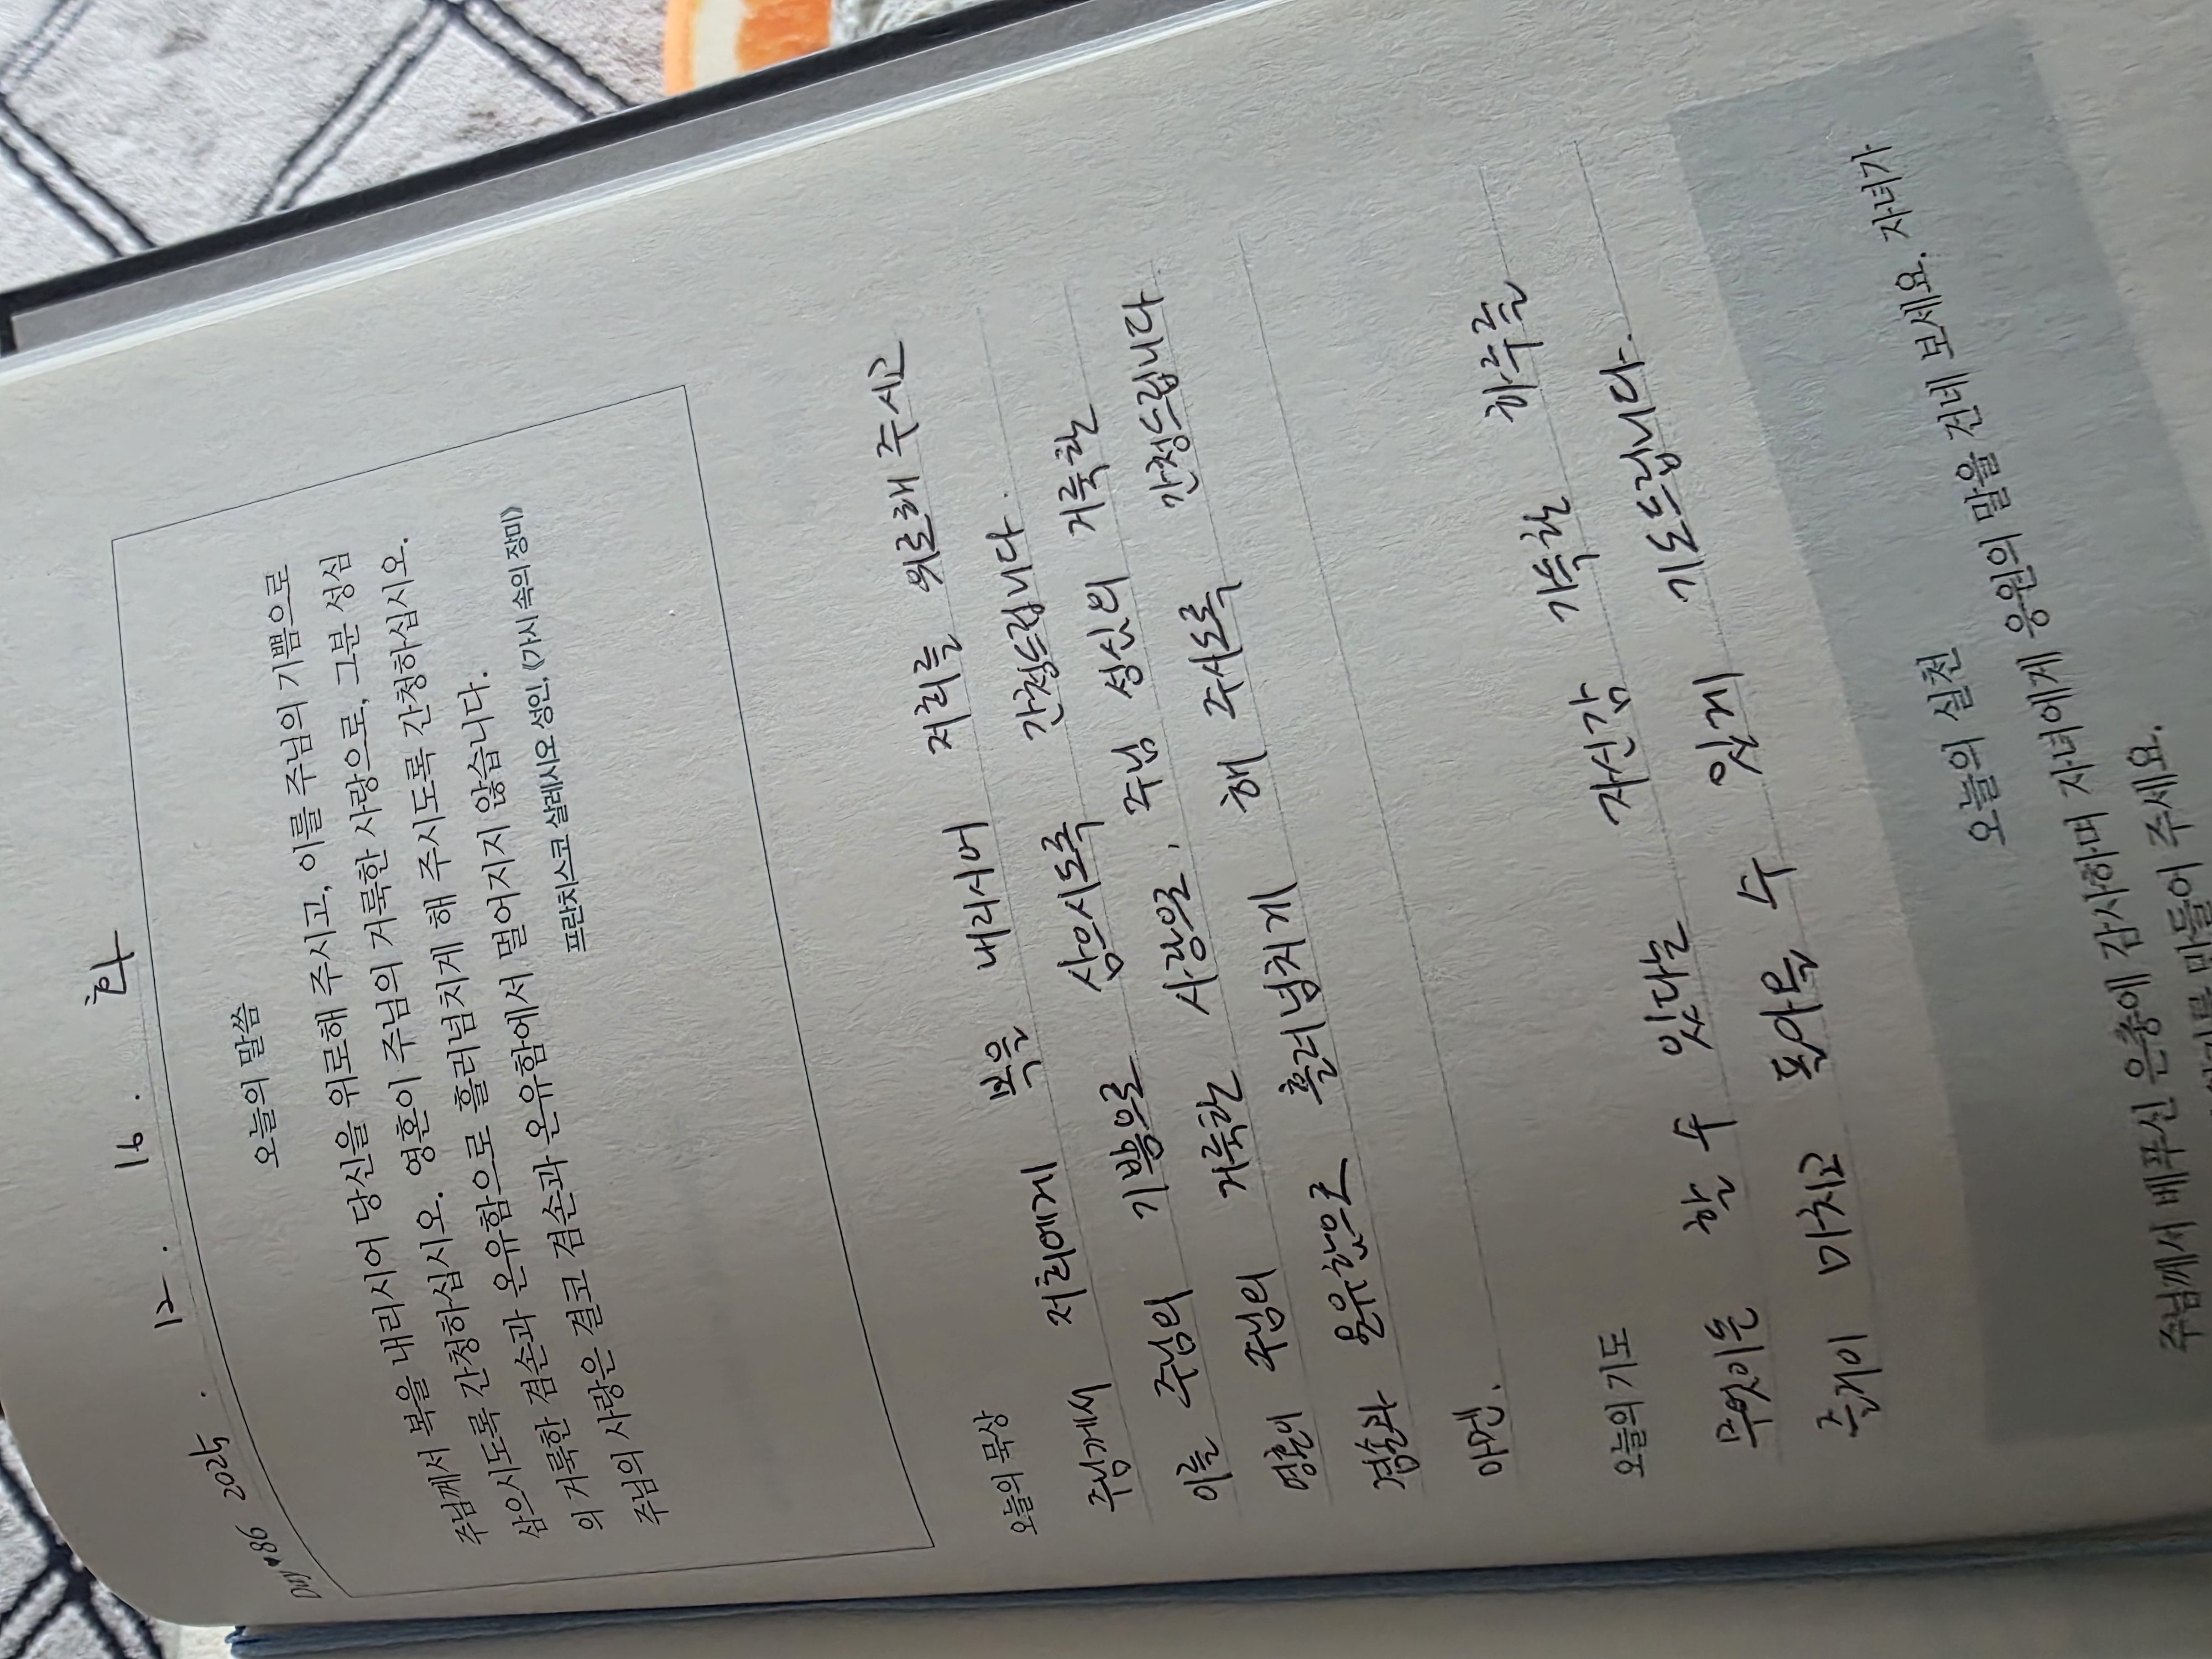 DAY 86 2025. 12. 16. 화
오늘의 말씀
주님께서 복을 내리시어 당신을 위로해 주시고, 이를 주님의 기쁨으로
삼으시도록 간청하십시오. 영혼이 주님의 거룩한 사랑으로, 그분 성심
의 거룩한 겸손과 온유함으로 흘러넘치게 해 주시도록 간청하십시오.
주님의 사랑은 결코 겸손과 온유함에서 멀어지지 않습니다.
프란치스코 살레시오 성인, 《가시 속의 장미》
오늘의 묵상
주님께서 저희에게 복을 내리시어 저희를 위로해 주시고
이를 주님의 기쁨으로 삼으시도록 간청드립니다.
영혼이 주님의 거룩한 사랑으로, 주님 성심의 거룩한
겸손과 온유함으로 흘러넘치게 해 주시도록 간청드립니다.
아멘.
오늘의 기도
무엇이든 할 수 있다는 자신감 가득한 하루를
줄게이 마치고 돌아올 수 있게 기도드립니다.
오늘의 실천
주님께서 베푸신 은총에 감사하며 자녀에게 응원의 말을 건네 보세요. 자녀가
만들어 주세요.